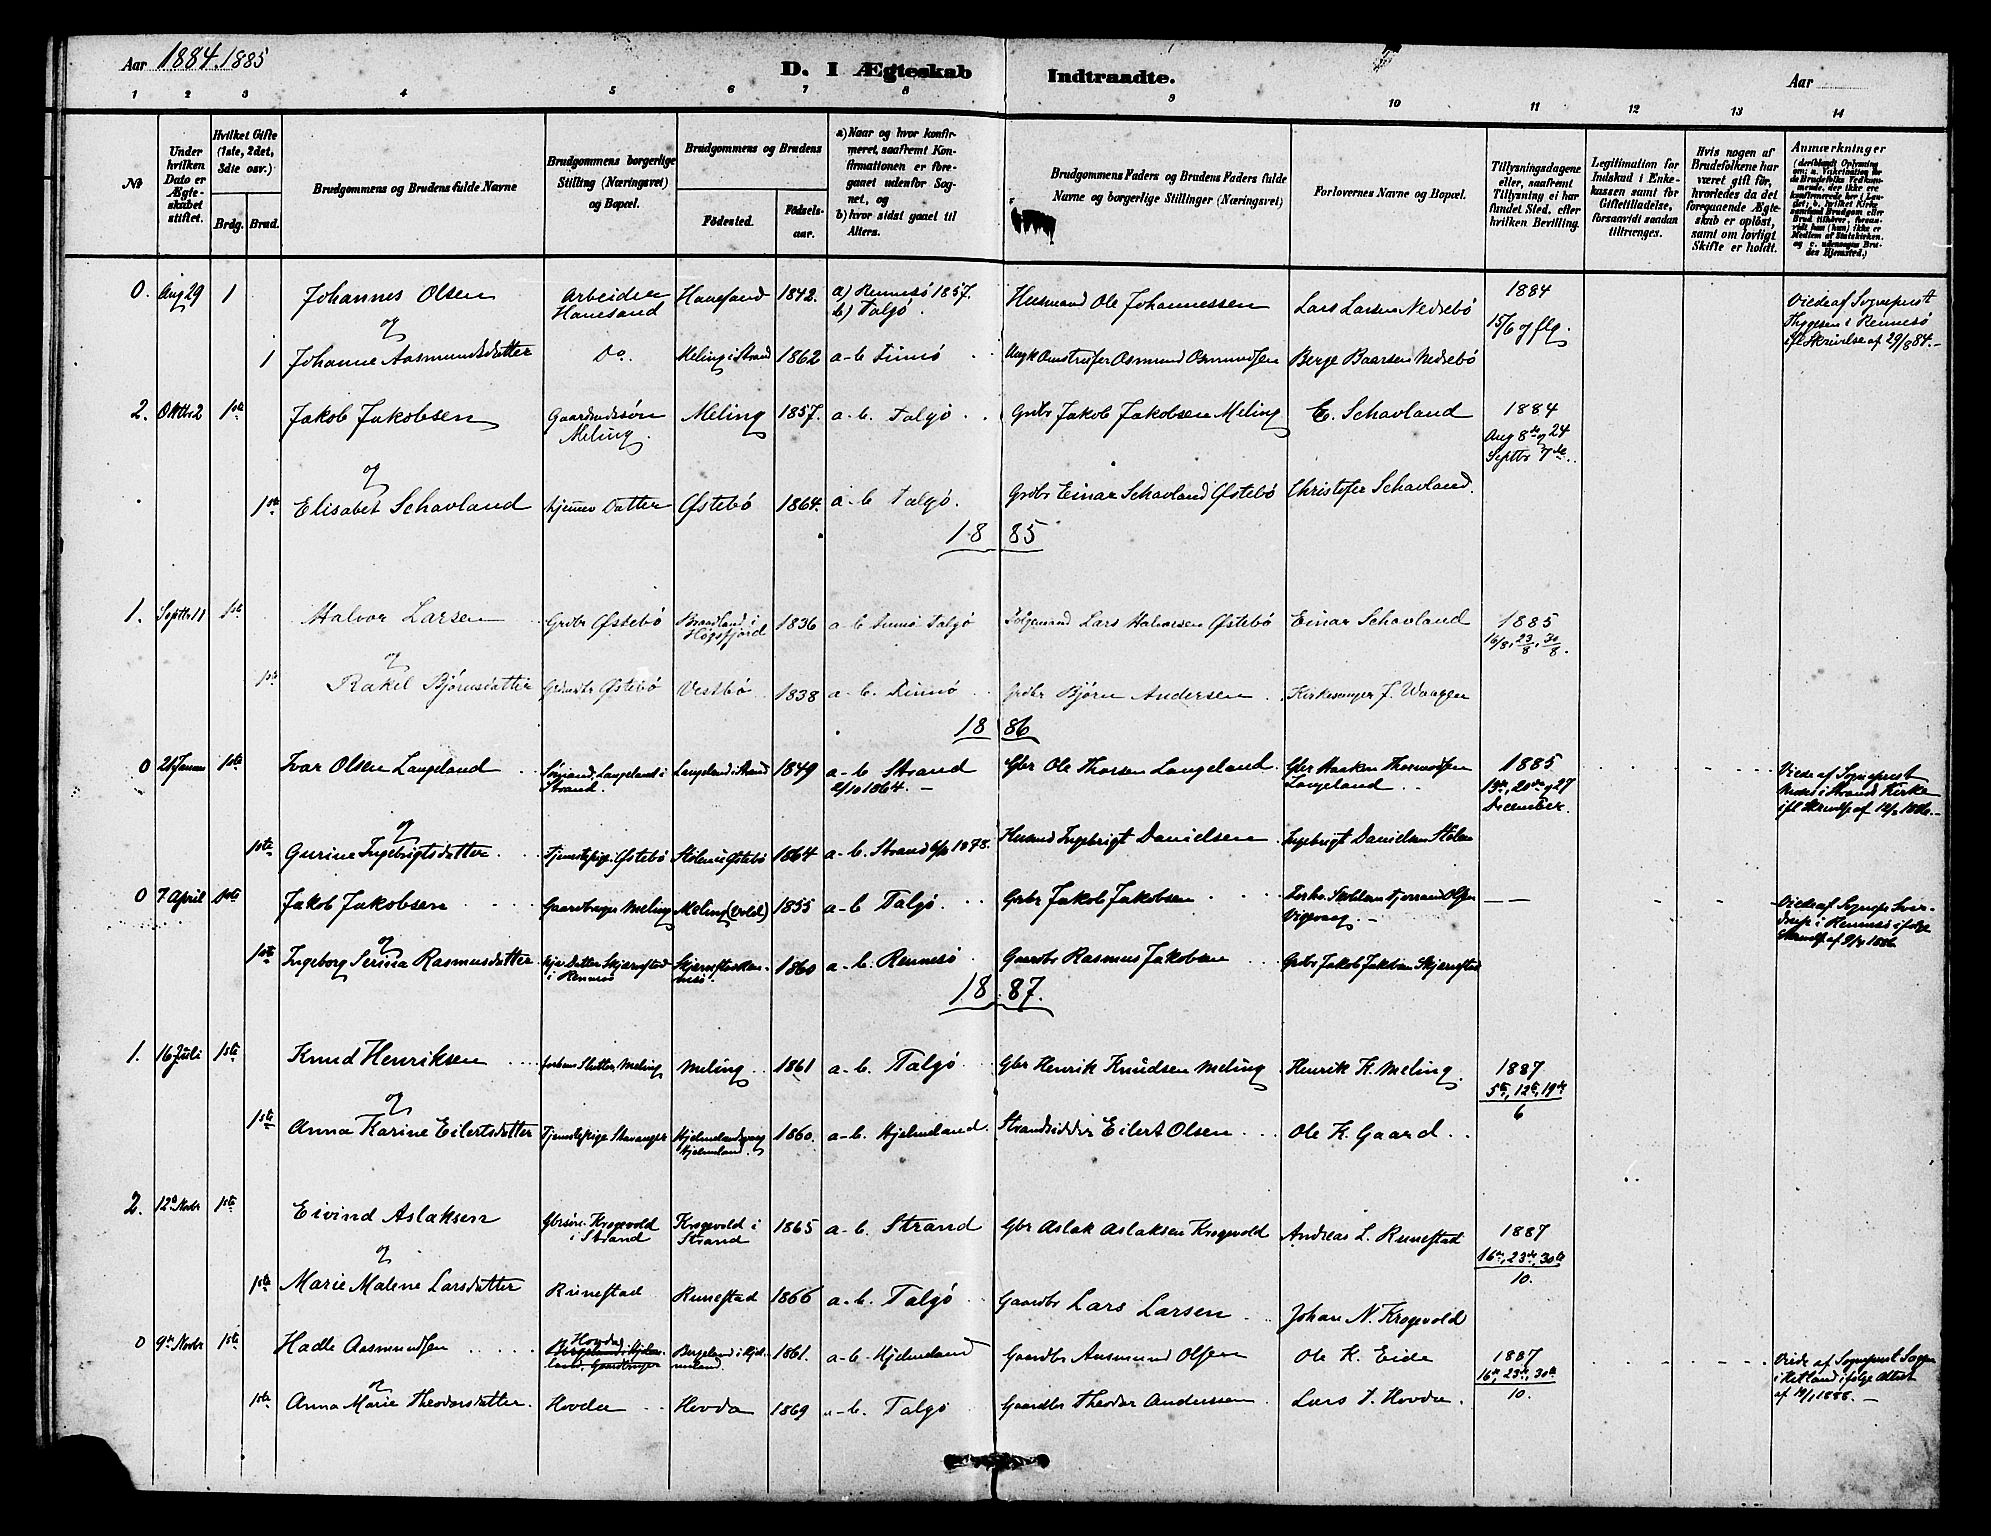 Aar 1884.1885
D. I Ægteskab Indtraadte.
Aar
1 2 3 4 5 6 7 8 9 10 11 12 13 14
No
Under hvilken Dato er Ægteskabet stiftet.
Hvilket Gifte (1ste, 2det, 3die osv.)
Brdg. Brud.
Brudgommens og Brudens fulde Navne
Brudgommens borgerlige Stilling (Næringsvei) og Bopæl.
Brudgommens og Brudens
Fødested. Fødselsaar.
a) Naar og hvor konfirmeret, saafremt Konfirmationen er foregaaet udenfor Sognet, og
b) hvor sidst gaaet til Alters.
Brudgommens Faders og Brudens Faders fulde Navne og borgerlige Stillinger (Næringsvei)
Forlovernes Navne og Bopæl.
Tillysningsdagene eller, saafremt Tillysning ei har fundet Sted, efter hvilken Bevilling.
Legitimation for Indskud i Enkekassen samt for Giftetilladelse, forsaavidt saadan tiltrænges.
Hvis nogen af Brudefolkene har været gift før, hvorledes da det foregaaende Ægteskab er opløst, samt om lovligt Skifte er holdt.
Anmærkninger
0. Aug 29 1 Johannes Olsen Arbeider Hanesand Hanesand 1842. a) Rennesö 1857. b) Talgö. Husmand Ole Johannessen Lars Larsen Nedrebö 1884 15/6 og flg. Viede af Sogneprest Thygesen i Rennesö ifl Skrivelse af 29/8 84.
og
1 Johanne Aasmundsdatter Do. Meling i Strand 1862 a-b Finnö Asmund Osmundsen Berge Baarsen Nedrebö
2. Oktbr 2 1ste Jakob Jakobsen Gaardmdssøn Meling. Meling 1857. a-b. Talgö Grdbr Jakob Jakobsen Meling E. Schavland 1884 Aug 8de og 24 Septbr 7de
og
1ste Elisabet Schavland hjemmev Datter Østebö 1864. a-b Talgö. Grdbr Einar Schavland Østebö Christofer Schavland.
1885
1. Septbr 11 1ste Halvor Larsen Grdbr Østebö Høgsfjord 1836 a-b Finnö Talgö Lars Halvorsen Østebö Einar Schavland 1885 16/8, 23/8, 30/8.
og
1ste Rakel Bjørnsdatter Østebö Vestbö 1838 a-b. Finnö Grdbr Bjørn Andersen Kirkesanger J. Waagen
1886
0 21 Januar 1ste Ivar Olsen Langeland Sømand, Langeland i Strand. Langeland i Strand 1849 a-b Strand 2/10 1864. Gbr Ole Thorsen Langeland Gbr Haaken Thormodsen Langeland 1885 13de, 20de og 27 December. Viede af Sogneprest i Strands Kirke
og
1ste Gurine Ingebrigtsdatter Tjenestepige. Østebö Østebö 1864 a-b. Strand 1878. Husmd Ingebrigt Danielsen Ingebrigt Danielsen
0 7 April 1ste Jakob Jakobsen Gaardbruger Meling Meling 1855 a-b Talgö. Grbr Jakob Jakobsen Vignvaag. Viede af i Rennesö ifølge 1886
og
1ste Ingeborg Serina Rasmusdatter hjev Datter Skjørefstad i Rennesö 1860 a-b. Rennesö Gaardbr Rasmus Jakobsen Grbr Jakob Jakobsen
1887.
1. 16 Juli 1ste Knud Henriksen Meling Meling 1861 a-b. Talgö Gbr Henrik Knudsen Meling Henrik K. Meling. 1887 5te, 12te, 19de 6
og
1ste Anna Karine Eilertsdatter Tjenestepige Stavanger Hjelmeland. 1860. a-b. Hjelmeland. Strandsidder Eilert Olsen Ole K. Gaard
2. 12te Novbr 1ste Eivind Aslaksen Gbrsøn. Krogevold i Strand Krogevold i Strand 1865 a-b. Strand Gbr Aslak Aslaksen Krogevold Andreas L. Runestad 1887 16de, 23de, 30te 10.
og
1ste Marie Malene Larsdatter Runestad Runestad 1866 a-b. Talgö Gaardbr Lars Larsen Johan N. Krogevold
0 9de Novbr 1ste Hadle Aasmundsen Hovda Bergeland, Hjelmeland. Gaardbruger Bergeland i Hjelmeland 1861. a-b. Hjelmeland Gaardbr Aasmund Olsen Ole K. Eide 1887 16de, 23de, 30te 10. Viede af Sogneprest i Hetland ifølge Attest 1888.
og
1ste Anna Marie Theodorsdatter. Hovda Hovda 1869 a-b. Talgö Gaardbr Theodor Anderssen Lars T. Hovda.